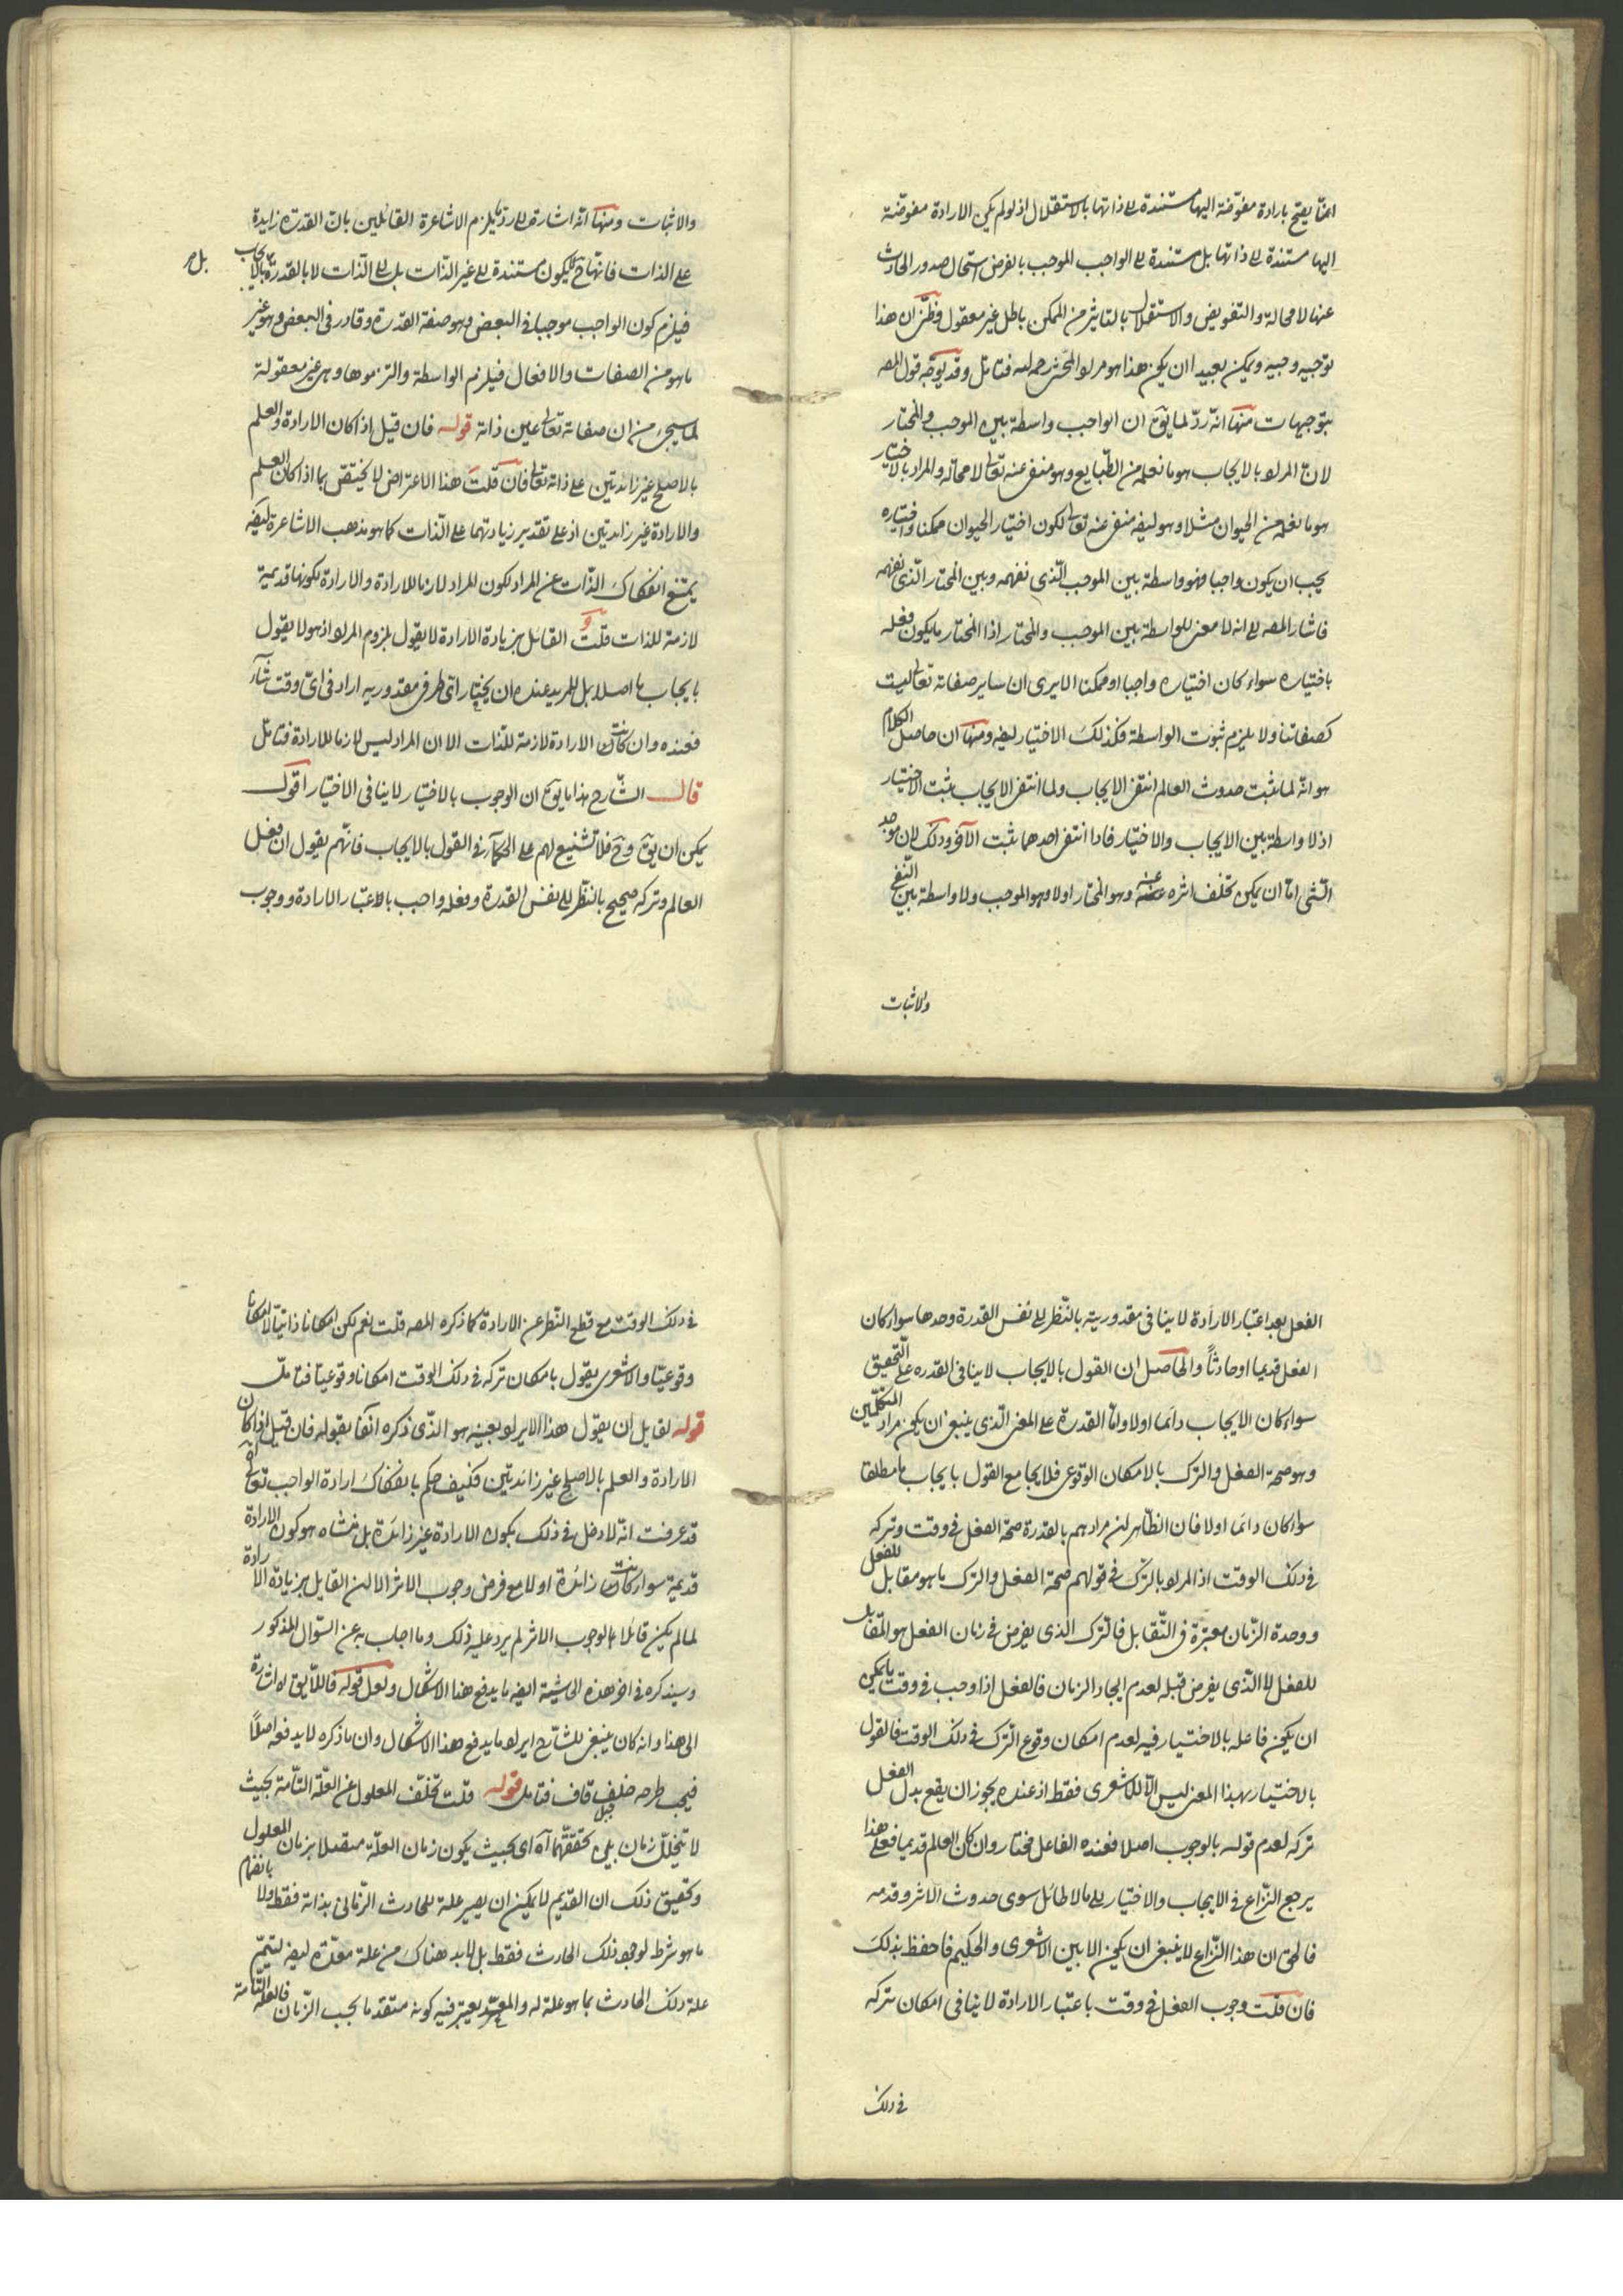 انما يصح بارادة مفوّضة اليها مستندة لے ذاتها بالاستقلال اذ لو لم يكن الارادة مفوضة
اليها مستندة لے ذاتها بل مستندة لے الواجب الموجب بالفرض استحال صدور الحادث
عنها لا محالة والتفويض والاستقلال بالتاثير من الممكن باطل غير معقول وظنّى ان هذا
توجيه وجيه ويمكن بعيدا ان يكون هذا هو مراد المحشى رحمه الله فتامّل وقد يوجّه قول المصه
بتوجيهات منها انّه ردّ لما يقٓ ان الواجب واسطة بين الموجب والمختار
لان المراد بالايجاب هو ما نعلمه من الطّبايع وهو منفى عنه تعالى لا محالة والمراد بالاختيار
هو ما نعلمه من الحيوان مثلا وهو ايضه منفى عنه تعالى لكون اختيار الحيوان ممكنا واختياره
يجب ان يكون واجبا فهو واسطة بين الموجب الّذى نفهمه وبين المختار الّذى نفهمه
فاشار المصه لے انه لا معنى للواسطة بين الموجب والمختار اذ المختار ما يكون فعله
باختياره سواء كان اختياره واجبا او ممكنا الا يرى ان ساير صفاته تعالى ليست
كصفاتنا ولا يلزم ثبوت الواسطة فكذلك الاختيار ايضه ومنها ان حاصل الكلام
هو انّه لما ثبت حدوث العالم انتفى الايجاب ولما انتفى الايجاب ثبت الاختيار
اذ لا واسطة بين الايجاب والاختيار فاذا انتفى احدهما ثبت الآخر وذلك لان موجد
الشئ امّا ان يمكن تخلف اثره عنه وهو المختار اولا وهو الموجب ولا واسطة بين النّفى
والاثبات
والاثبات ومنها انّه اشارة لے رد ما يلزم الاشاعرة القائلين بانّ القدرة زايدة
على الذات فانّها حٓ لا يكون مستندة لے غير الذّات بل لے الذّات لا بالقدرة بل بالايجاب
بل م
فيلزم كون الواجب موجبا فى البعض وهو صفة القدرة وقادر فى البعض وهو غير
ما هو من الصفات والافعال فيلزم الواسطة والتزموها وهى غير معقولة
لما سيجئ من ان صفاته تعالى عين ذاته قوله فان قيل اذا كان الارادة والعلم
بالاصلح غير زائدتين على ذاته تعالى فان قلت هذا الاعتراض لا يختص بما اذا كان العلم
والارادة غير زائدتين اذ على تقدير زيادتهما على الذّات كما هو مذهب الاشاعرة ايضه
يمتنع انفكاك الذّات عن المراد لكون المراد لازما للارادة والارادة لكونها قديمة
لازمة للذات قلت و القائل بزيادة الارادة لا يقول بلزوم المراد اذ هو لا يقول
بايجاب ما اصلا بل للمريد عنده ان يختار اىّ طرفى مقدوريه اراد فى اىّ وقت شآء
فعنده وان كانت الارادة لازمة للذات الا ان المراد ليس لازما للارادة فتامّل
قال الشّارح هذا ما يقٓ ان الوجوب بالاختيار لا ينافى الاختيار اقول
يمكن ان يقٓ وحٓ فلا تشنيع لهم على الحكمآء فى القول بالايجاب فانّهم يقول ان فعل
العالم وتركه صحيح بالنّظر لے نفس القدرة وفعله واجب بالاعتبار الارادة ووجوب
الفعل بعد اعتبار الارادة لا ينافى مقدوريته بالنّظر لے نفس القدرة وحدها سواء كان
الفعل قديما او حادثاً والحاصل ان القول بالايجاب لا ينافى القدره على التّحقيق
سواء كان الايجاب دائما اولا وامّا القدرة على المعنى الّذى ينبغى ان يكون مراد المتكلّمين
وهو صحة الفعل والترك بالامكان الوقوعى فلا يجامع القول بايجاب ما مطلقا
سواء كان دائما اولا فان الظّاهر ان مرادهم بالقدرة صحة الفعل فى وقت وتركه
فى ذلك الوقت اذ المراد بالترك فى قولهم صحة الفعل والترك ما هو مقابل للفعل
ووحدة الزّمان معتبرة فى التّقابل فالترك الذى يفرض فى زمان الفعل هو المقابل
للفعل لا الّذى يفرض قبله لعدم اتحاد الزمان فالفعل اذا وجب فى وقت ما لا يمكن
ان يكون فاعله بالاختيار فيه لعدم امكان وقوع التّرك فى ذلك الوقت فالقول
بالاختيار بهذا المعنى ليس الّا للاشعرى فقط اذ عنده يجوز ان يقع بدل الفعل
تركه لعدم قوله بالوجوب اصلا فعنده الفاعل مختار وان كان العالم قديما فعلى هذا
يرجع النّزاع فى الايجاب والاختيار لے ما لا طائل سوى حدوث الاثر وقدمه
فالحق ان هذا النّزاع لا ينبغى ان يكون الا بين الاشعرى والحكيم فاحفظ بذلك
فان قلت وجوب الفعل فى وقت باعتبار الارادة لا ينافى امكان تركه
فى ذلك
فى ذلك الوقت مع قطع النّظر عن الارادة كما ذكره المصه قلت نعم لكن امكانا ذاتيّا لا امكانا
وقوعيّا والاشعرى يقول بامكان تركه فى ذلك الوقت امكانا وقوعيّا فتامّل
قوله لقايل ان يقول هذا الايراد بعينه هو الّذى ذكره آنفا بقوله فان قيل اذا كان
الارادة والعلم بالاصلح غير زائدتين فكيف حكم بانفكاك ارادة الواجب تعالى
قد عرفت انّه لا دخل فى ذلك بكون الارادة غير زائدة بل منشاه هو كون الارادة
قديمة سواء كانت زائدة اولا مع فرض وجوب الاثر الا ان القايل بزيادة الارادة
لما لم يكن قائلا بالوجوب الاثر لم يرد عليه ذلك وما اجاب به عن السّوال المذكور
وسيذكره فى اخر هذه الحاشية ايضه ما يدفع هذا الاشكال ولعل قوله فاللّايق له اشارة
الى هذا وانه كان ينبغى للشّارح ايراد ما يدفع هذا الاشكال وان ما ذكره لا يدفعه اصلاً
فيجب طرحه خلف قاف فتامل قوله قلت تخلّف المعلول عن العلّة التّامة بحيث
لا يتخلّل زمان بين تحقّقهما آه اى بحيث يكون زمان العلّة متصلا بزمان المعلول
وتحقيق ذلك ان القديم لا يمكن ان يصير علة للحادث الزّمانى بذاته فقط ولا بانضمام
ما هو شرط لوجود ذلك الحادث فقط بل لا بد هناك من علة معدّة ايضه لتتمّ
علة ذلك الحادث بما هو علة له والمعدّ يعتبر فيه كونه متقدما بحسب الزّمان فالعلة التّامة